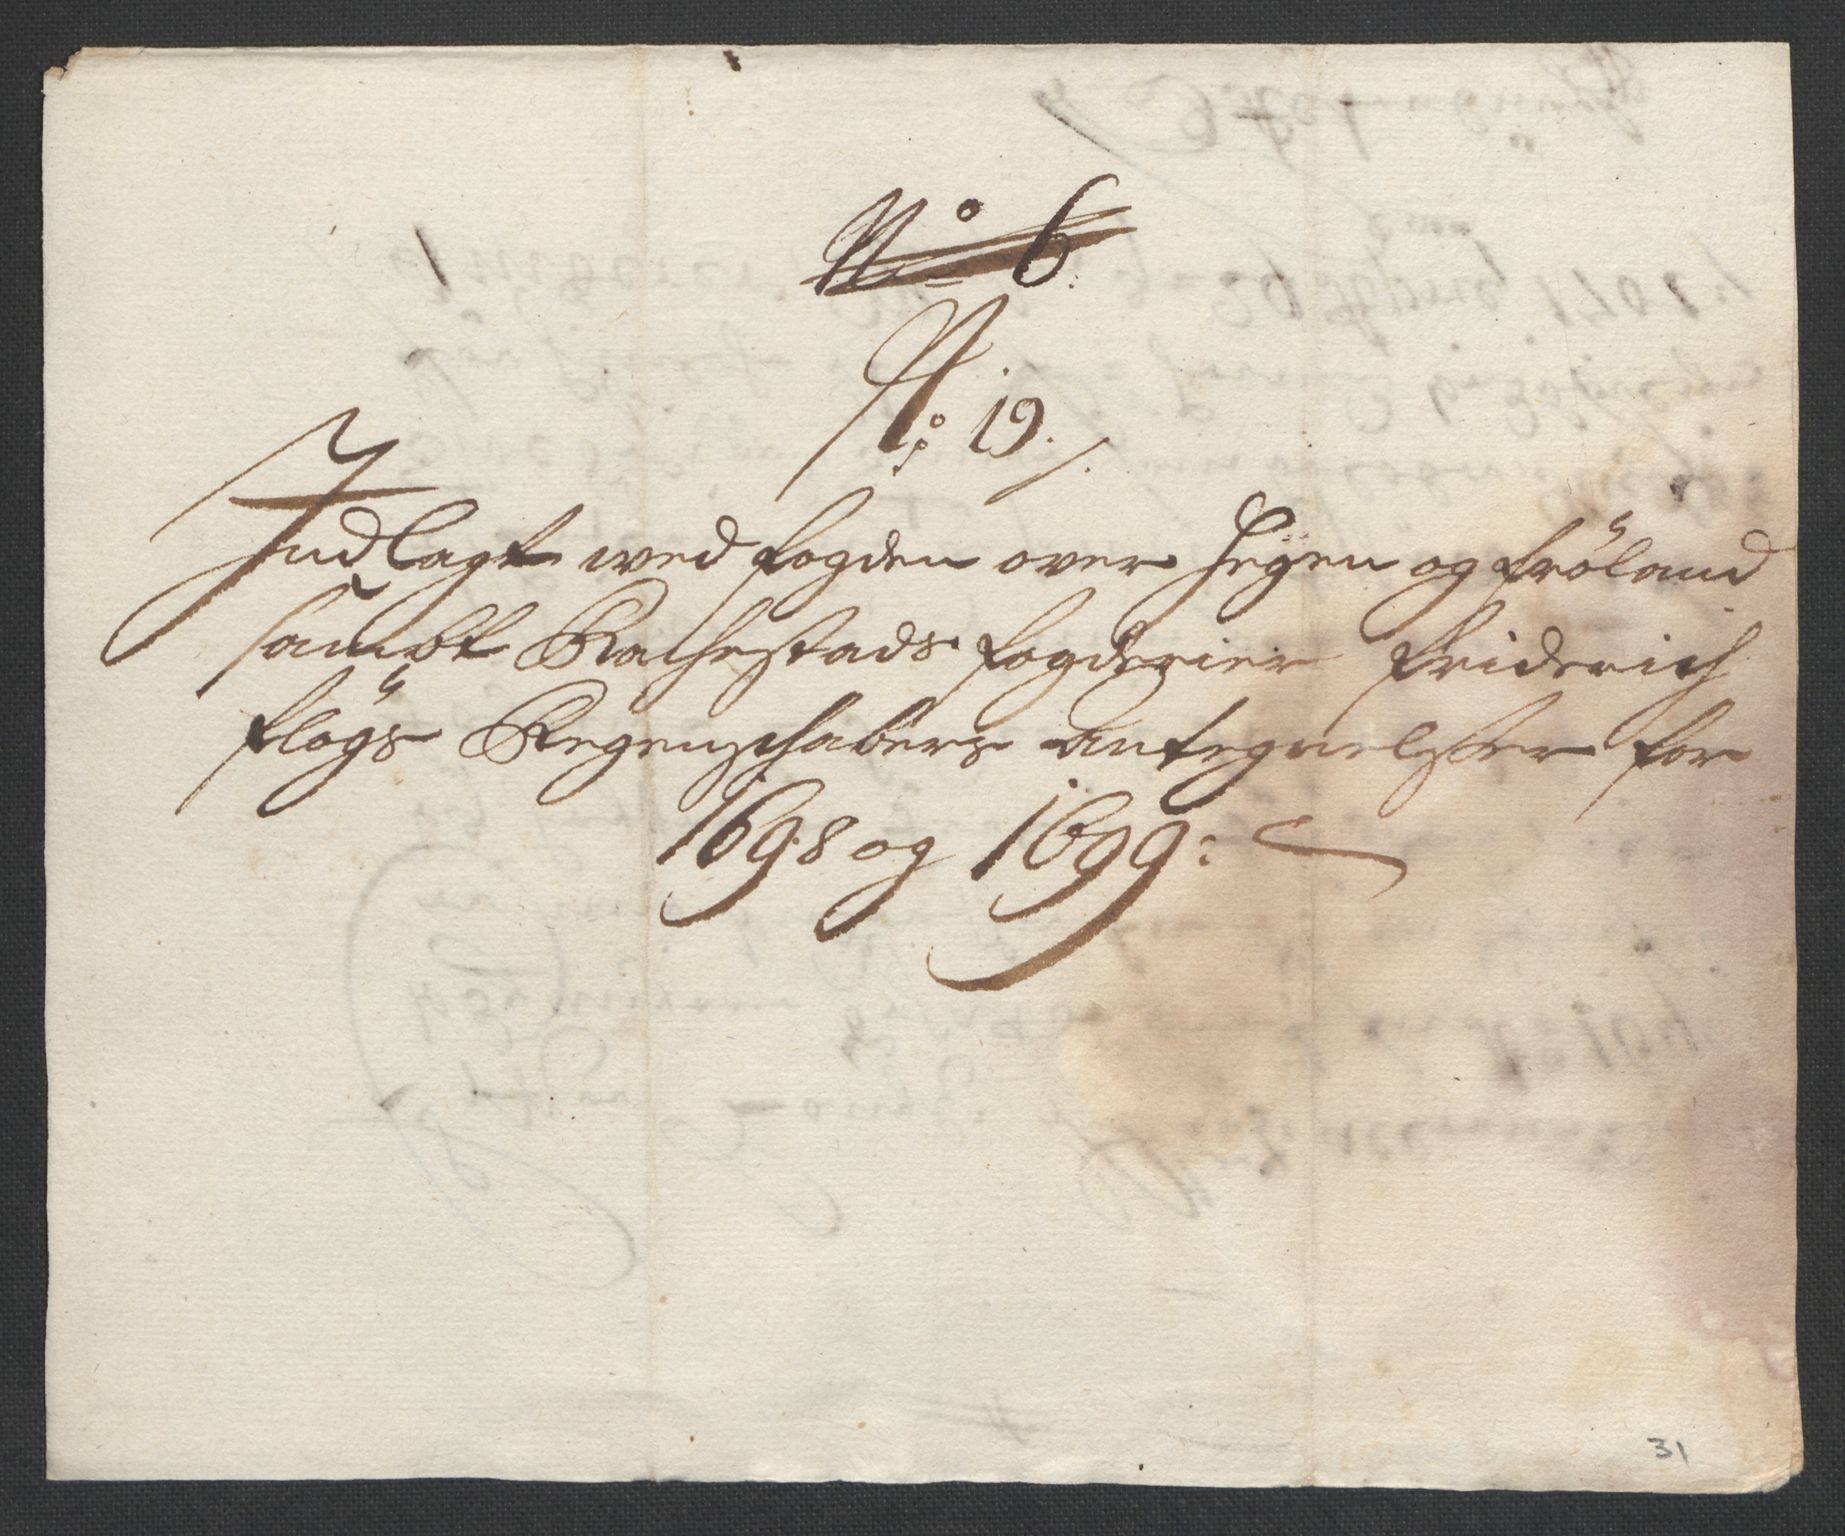 No 6.
No 19.
Indlagt ved fogden over Heyen og Fröland
sambt Rachestads fogderier Friderich
Flögs Regenschabers Antegnelsser for
1698 og 1699:
31